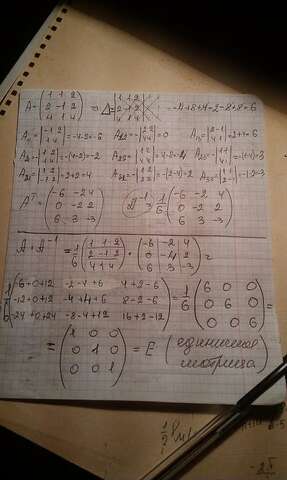 A = (1 1 2
2 -1 2
4 1 4) ⇒ Δ = |1 1 2
2 -1 2
4 1 4| = -4+8+4+8-2-8 = 6
A₁₁ = |-1 2
1 4| = -4-2 = -6 A₁₂ = -|2 2
4 4| = 0 A₁₃ = |2 -1
4 1| = 2+4 = 6
A₂₁ = -|1 2
1 4| = -(4-2) = -2 A₂₂ = |1 2
4 4| = 4-8 = -4 A₂₃ = -|1 1
4 1| = -(1-4) = 3
A₃₁ = |1 2
-1 2| = 2+2 = 4 A₃₂ = -|1 2
2 2| = -(2-4) = 2 A₃₃ = |1 1
2 -1| = -1-2 = -3
Aᵀ = (-6 -2 4
0 -2 2
6 3 -3) A⁻¹ = 1/6 (-6 -2 4
0 -2 2
6 3 -3)
A · A⁻¹ = 1/6 (1 1 2
2 -1 2
4 1 4) · (-6 -2 4
0 -4 2
6 3 -3) =
1/6 (-6+0+12 -2-4+6 4+2-6
-12+0+12 -4+4+6 8-2-6
-24+0+24 -8-4+12 16+2-12) = 1/6 (6 0 0
0 6 0
0 0 6) =
= (1 0 0
0 1 0
0 0 1) = E (единичная
матрица)